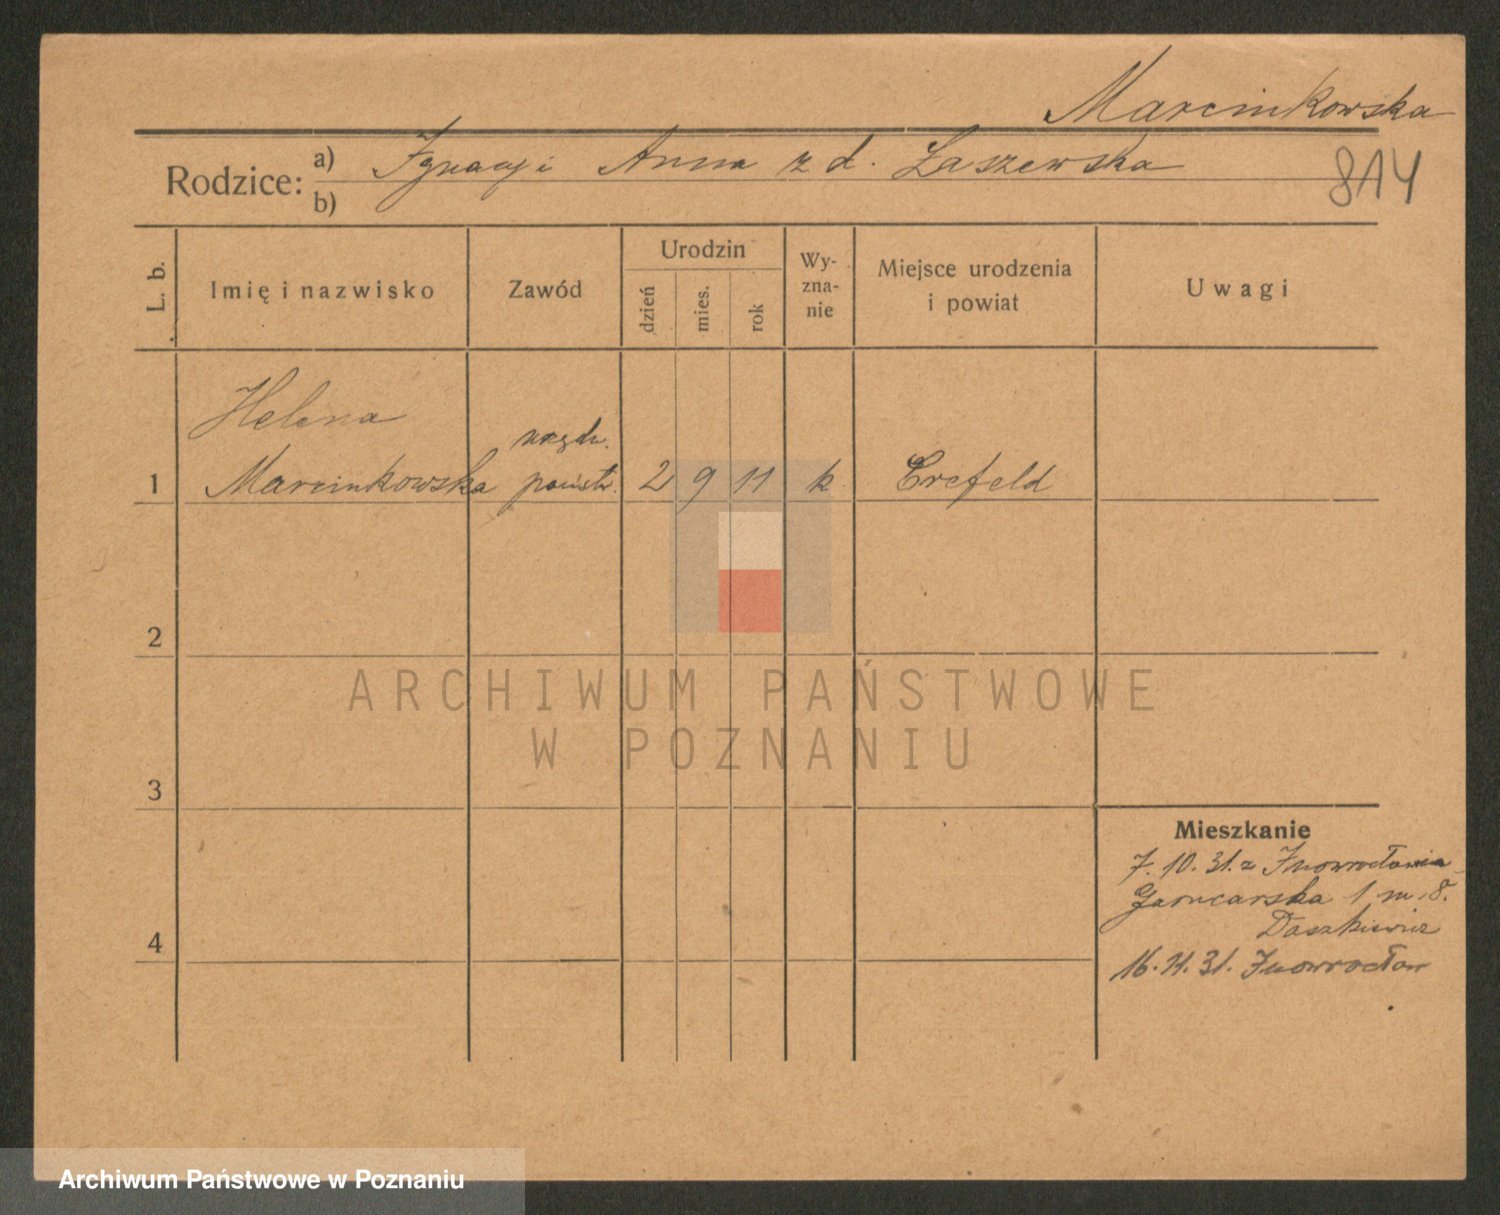 Marcinkowska
Rodzice: a) Ignacy i Anna z d. Łaszewska
b)
814
L. b. Imię i nazwisko Zawód Urodzin dzień mies. rok Wy-zna-nie Miejsce urodzenia i powiat Uwagi
Helena
urzędn.
1 Marcinkowska państw. 2 9 11 k Crefeld
2
ARCHIWUM PAŃSTWOWE
W POZNANIU
3
Mieszkanie
7. 10. 31. z Inowrocławia
Garncarska 1 m. 8.
Daszkiewicz
4
16. 11. 31. Inowrocław
Archiwum Państwowe w Poznaniu